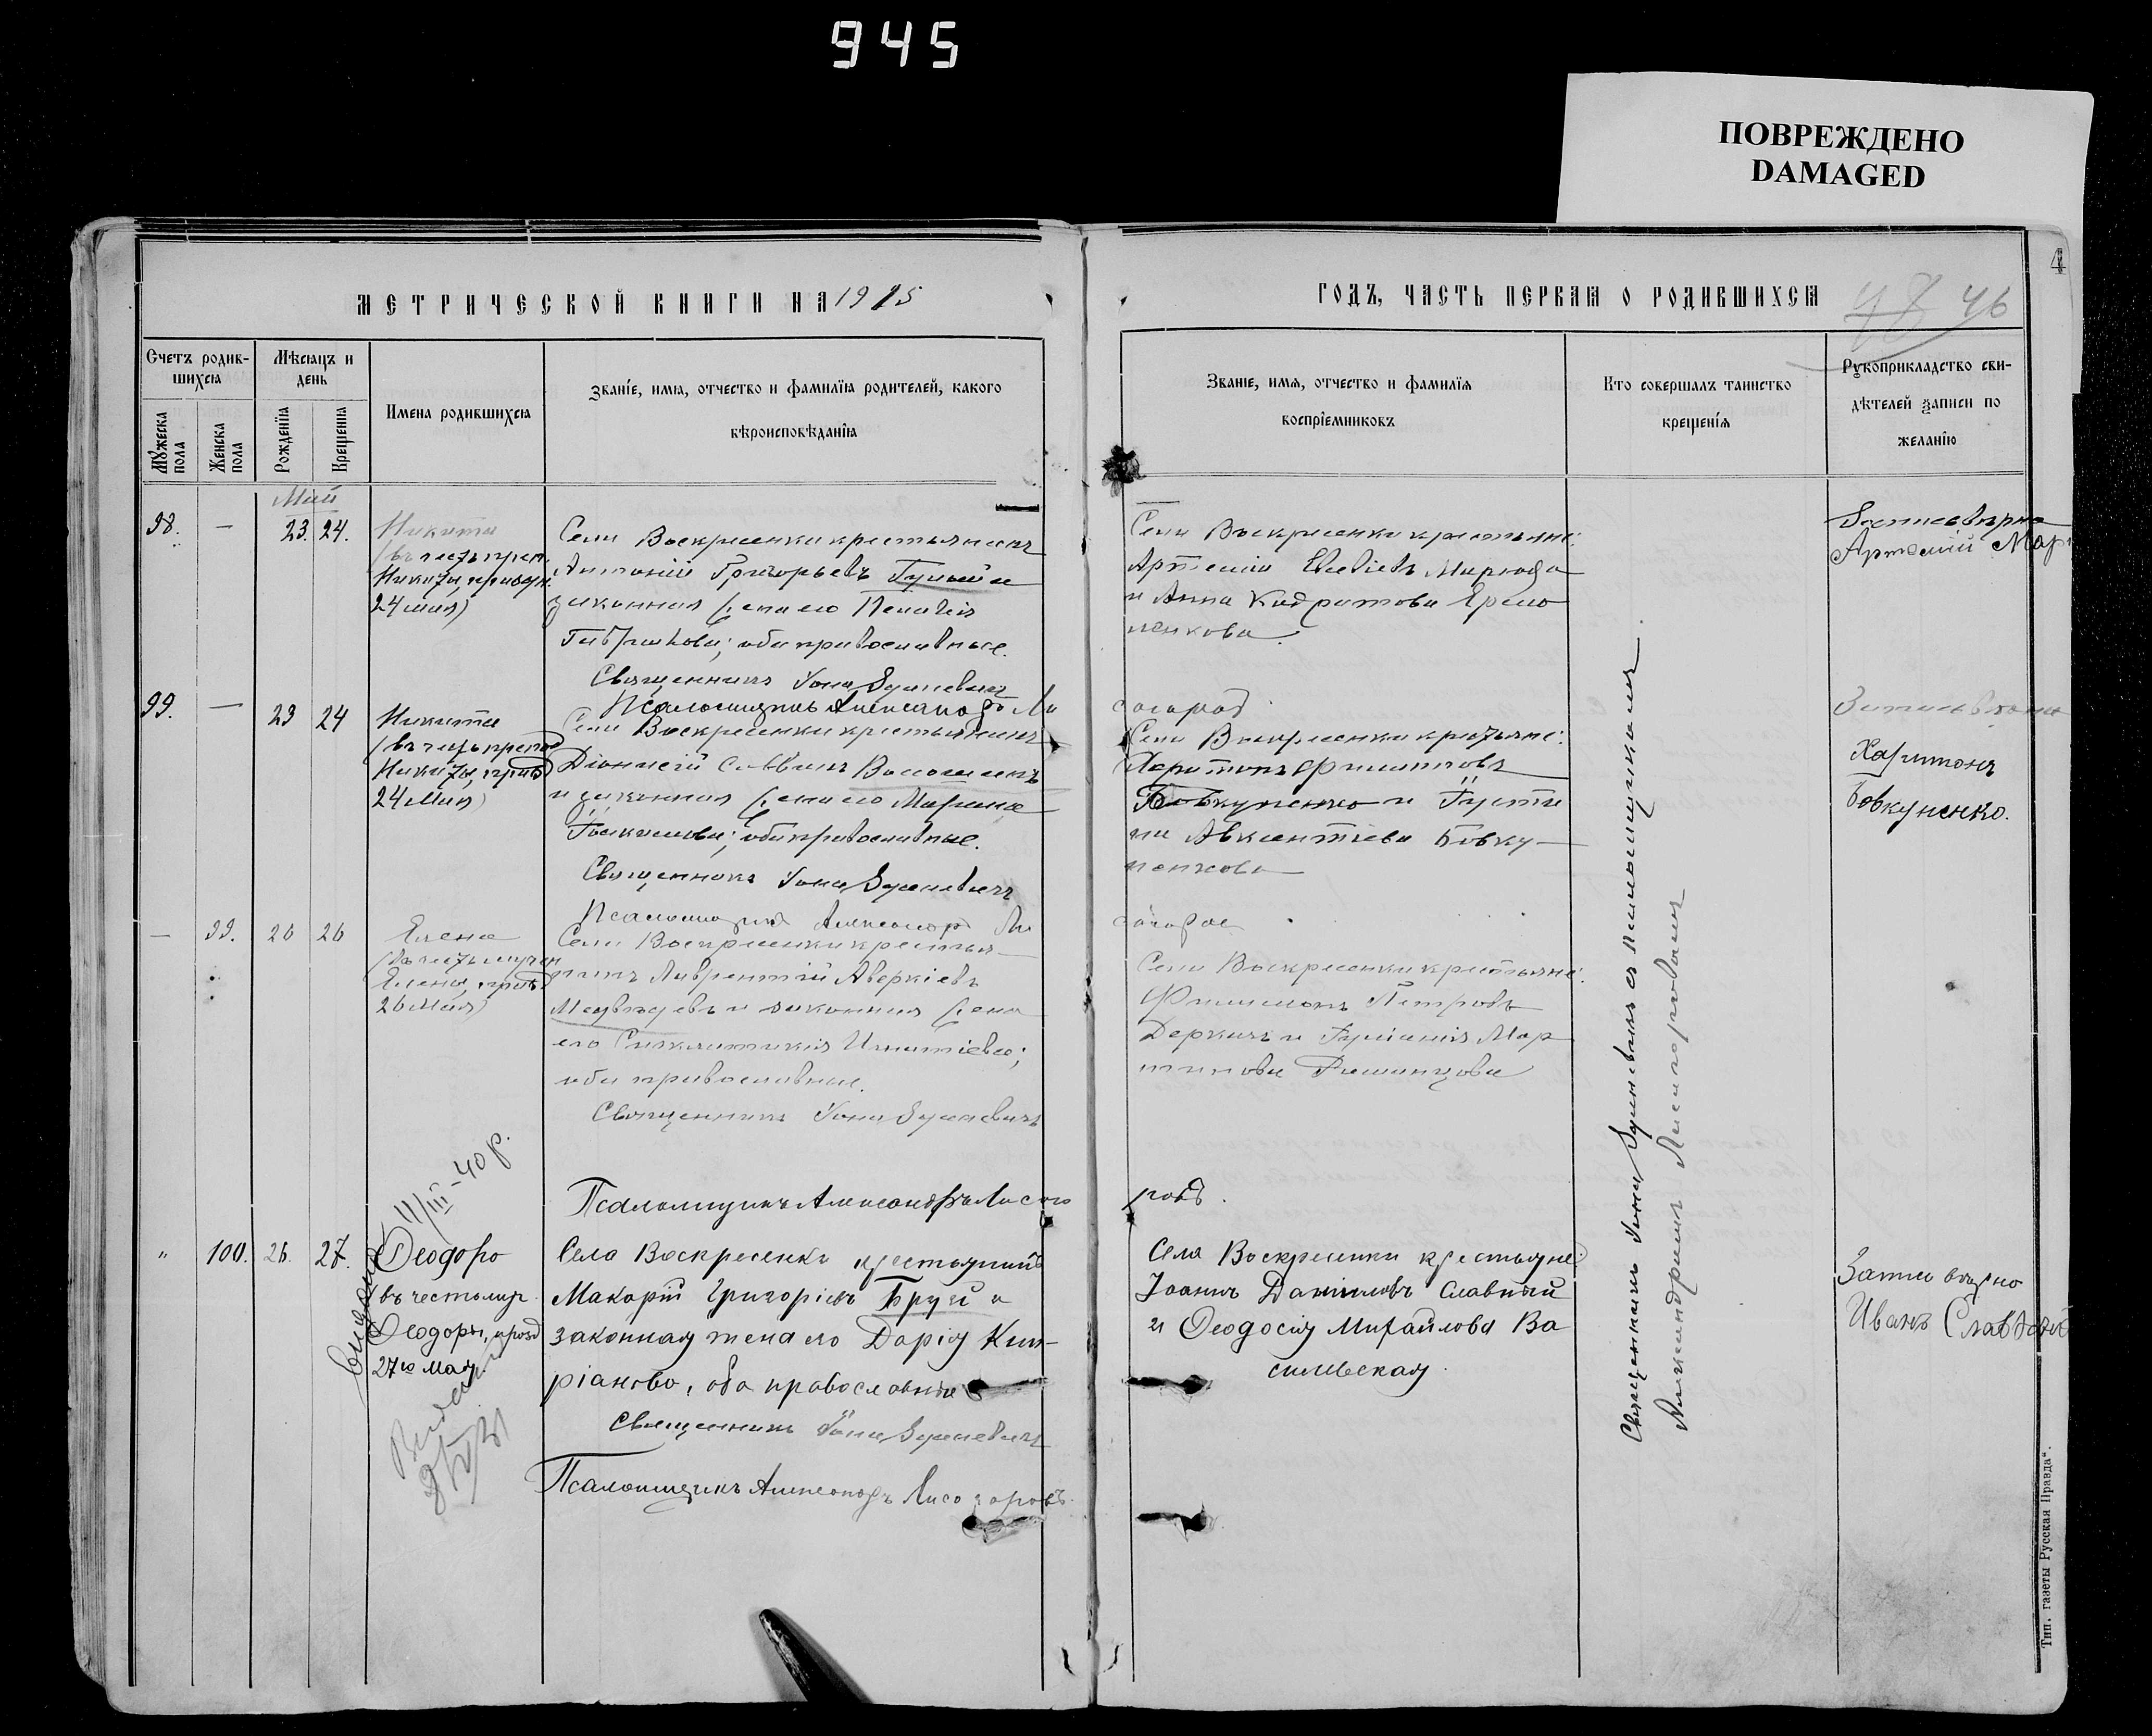 945
ПОВРЕЖДЕНО
DAMAGED
МЕТРИЧЕСКОЙ КНИГИ НА 1915
ГОДЪ, ЧАСТЬ ПЕРВАЯ О РОДИВШИХСЯ
46
4
Счетъ родив-
шихся
Мѣсяцъ и
день
Мужеска
пола
Женска
пола
Рожденія
Крещенія
Имена родившихся
Званіе, имя, отчество и фамилія родителей, какого
вѣроисповѣданія
Званіе, имя, отчество и фамилія
воспріемниковъ
Кто совершалъ таинство
крещенія
Рукоприкладство сви-
дѣтелей записи по
желанію
Май
98. — 23. 24.
Никита
(въ честь преп.
Никиты, празд.
24 мая)
Села Воскресенки крестьянинъ
Антоній Григорьевъ и
законная жена его Пелагія
обa православные.
Священникъ Іона
Псаломщикъ Александръ Ли
согоров
Села Воскресенки крестьяне:
Артемій
и Анна Кодратова Ермо
ленкова.
Запись вѣрна
Артемій Мар
99. — 23 24
Никита
(въ честь препод
Никиты, празд
24 мая)
Села Воскресенки крестьянинъ
Діонисій Саввинъ Волошинъ
и законная жена его Марина
оба православные.
Священникъ Іона
Псаломщикъ Александръ Ли
согоров
Села Воскресенки крестьяне:
Харитонъ Филипповъ
Бовкуненко и Густи
на Авксентіева Бовку-
ненкова
Харитонъ
Бовкуненко.
— 99. 26 26
Елена
(въ честь мучен
Елены, празд
26 мая)
Села Воскресенки крестья-
нинъ Лаврентій Аверкіевъ
Медвѣдевъ и законная жена
его Синклитикія Игнатіева;
оба православные.
Священникъ Іона
Псаломщикъ Александръ Лисого
ровъ.
Села Воскресенки крестьяне:
Филимонъ Петровъ
Деркачъ и Іуліанія Мар
тинова
11/III-40 р.
" 100. 26. 27.
Ѳеодора
въ честь муч.
Ѳеодоры, празд
27го мая.
Села Воскресенки крестьянинъ
Макарій Григоріевъ Бруй и
законная жена его Дарія Кип-
ріанова, оба православные
Священникъ Іона
Псаломщикъ Александръ Лисогоровъ.
Села Воскресенки крестьяне:
Іоаннъ Данииловъ Славный
и Ѳеодосія Михайлова Ва
сильевская.
Запись вѣрно
Иванъ Славный
Священникъ Іона съ псаломщикомъ
Александромъ Лисогоровымъ
Тип. газеты Русская Правда".